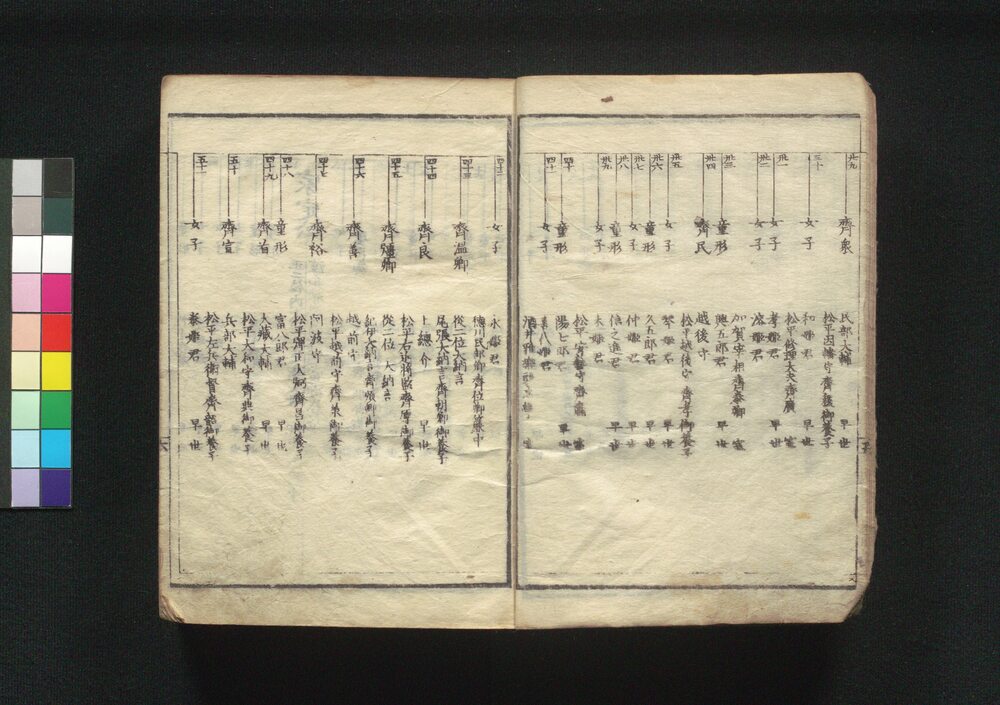 廿九 齊衆
民部大輔 早世
松平因幡守齊稷御養子
三十 女子
和姫君 早世
松平修理大夫齊廣 室
卅一 女子
孝姫君 早世
卅二 女子
溶姫君
加賀宰相齊泰卿 室
卅三 童形
興五郎君 早世
卅四 齊民
越後守
松平越後守齊孝御養子
卅五 女子
琴姫君 早世
卅六 童形
久五郎君 早世
卅七 女子
仲姫君 早世
卅八 童形
信之進君 早世
卅九 女子
末姫君
松平安藝守齊肅 室
四十 童形
陽七郎君 早世
四十一 女子
喜代姫君
酒井雅樂頭 室
四十二 女子
永姫君
德川民部卿齊位卿簾中
四十三 齊温卿
從二位大納言
尾張大納言齊朝卿御養子
四十四 齊良
上總介 早世
松平右近將監齊厚御養子
四十五 齊彊卿
從二位大納言
紀伊大納言齊順卿御養子
四十六 齊善
越前守
松平越前守齊承御養子
四十七 齊裕
阿波守
松平彈正大弼齊昌御養子
四十八 童形
富八郎君 早世
四十九 齊省
大藏大輔 早世
松平大和守齊典御養子
五十 齊宣
兵部大輔
松平左兵衛督齊韶御養子
五十一 女子
泰姫君 早世